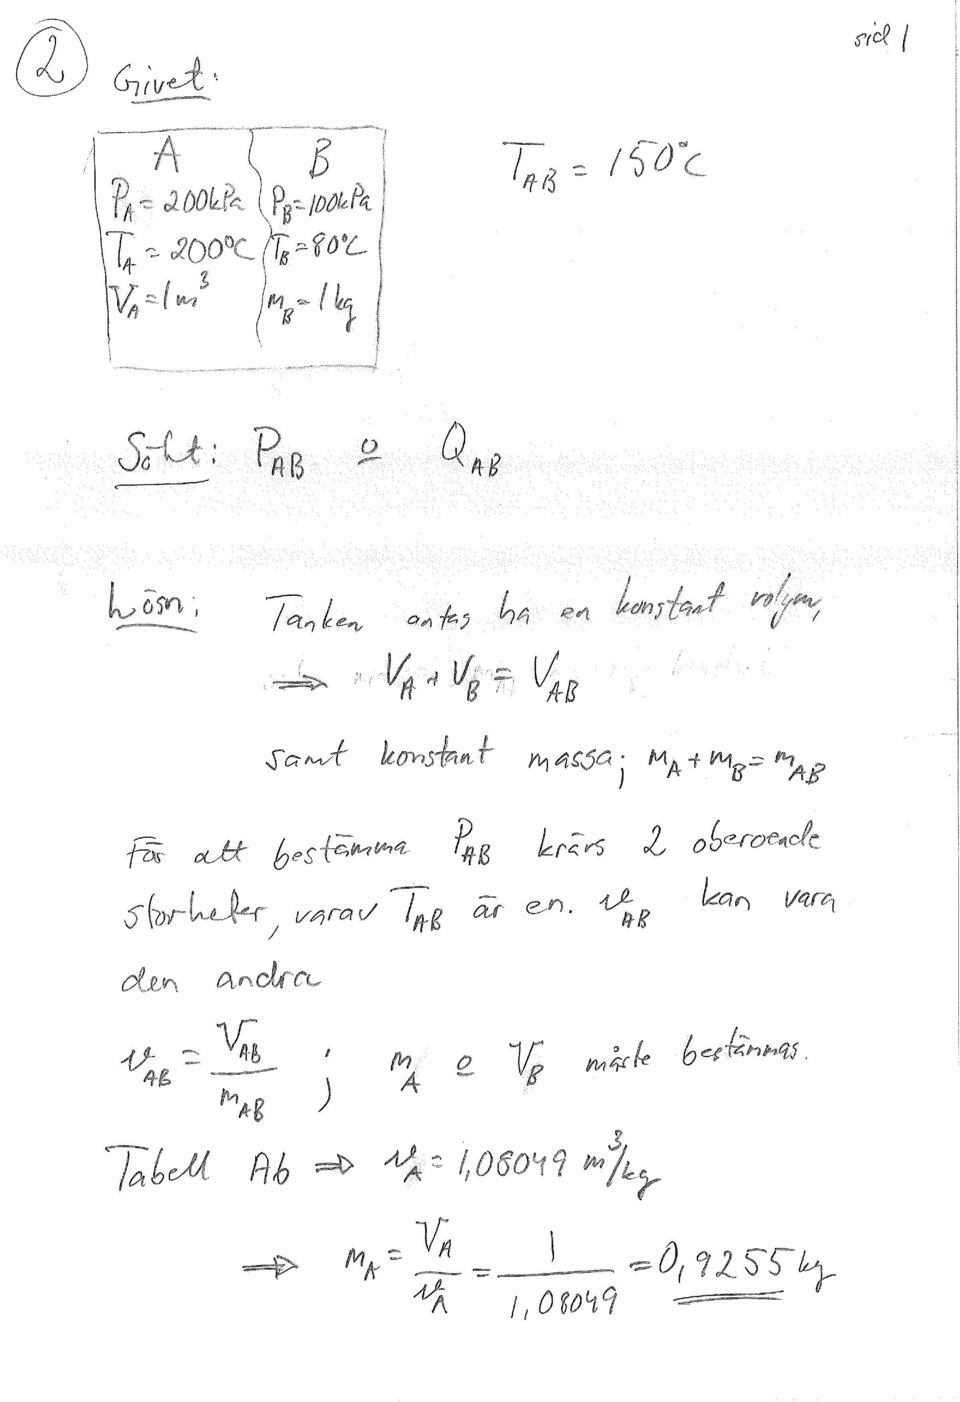 sid 1
2
Givet:
A
P_A = 200kPa
T_A = 200°C
V_A = 1m³
B
P_B = 100kPa
T_B = 80°C
m_B = 1kg
T_AB = 150°C
Sökt: P_AB o Q_AB
Lösn: Tanken antas ha en konstant volym,
⇒ V_A + V_B = V_AB
samt konstant massa; m_A + m_B = m_AB
För att bestämma P_AB krävs 2 oberoende
storheter, varav T_AB är en. v_AB kan vara
den andra
v_AB = V_AB / m_AB ; m_A o V_B måste bestämmas.
Tabell A6 ⇒ v_A = 1,08049 m³/kg
⇒ m_A = V_A / v_A = 1 / 1,08049 = 0,9255 kg